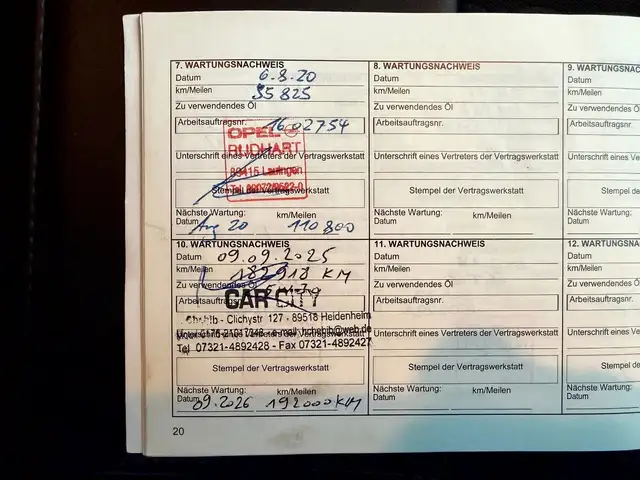 7. WARTUNGSNACHWEIS
Datum 6.8.20
km/Meilen 95825
Zu verwendendes Öl
Arbeitsauftragsnr. 1602754
OPEL
RUDHART
Unterschrift eines Vertreters der Vertragswerkstatt
89415 Lauingen
Stempel der Vertragswerkstatt
Nächste Wartung: km/Meilen
Datum Aug 20 110 800
8. WARTUNGSNACHWEIS
Datum
km/Meilen
Zu verwendendes Öl
Arbeitsauftragsnr.
Unterschrift eines Vertreters der Vertragswerkstatt
Stempel der Vertragswerkstatt
Nächste Wartung: km/Meilen
Datum
9. WARTUNGSNACH
Datum
km/Meilen
Zu verwendendes Öl
Arbeitsauftragsnr.
Unterschrift eines Ver
Stempel de
Nächste Wartung:
Datum
10. WARTUNGSNACHWEIS
Datum 09.09.2025
km/Meilen 182918 KM
Zu verwendendes Öl
Arbeitsauftragsnr.
CAR CITY
Clichystr 127 - 89518 Heidenheim
Tel 07321-4892428 - Fax 07321-4892427
Stempel der Vertragswerkstatt
Nächste Wartung: km/Meilen
Datum 09.2026 192000 KM
11. WARTUNGSNACHWEIS
Datum
km/Meilen
Zu verwendendes Öl
Arbeitsauftragsnr.
Unterschrift eines Vertreters der Vertragswerkstatt
Stempel der Vertragswerkstatt
Nächste Wartung: km/Meilen
Datum
12. WARTUNGSNA
Datum
km/Meilen
Zu verwendendes
Arbeitsauftragsnr
Unterschrift eines V
Stempel d
Nächste Wartung
Datum
20